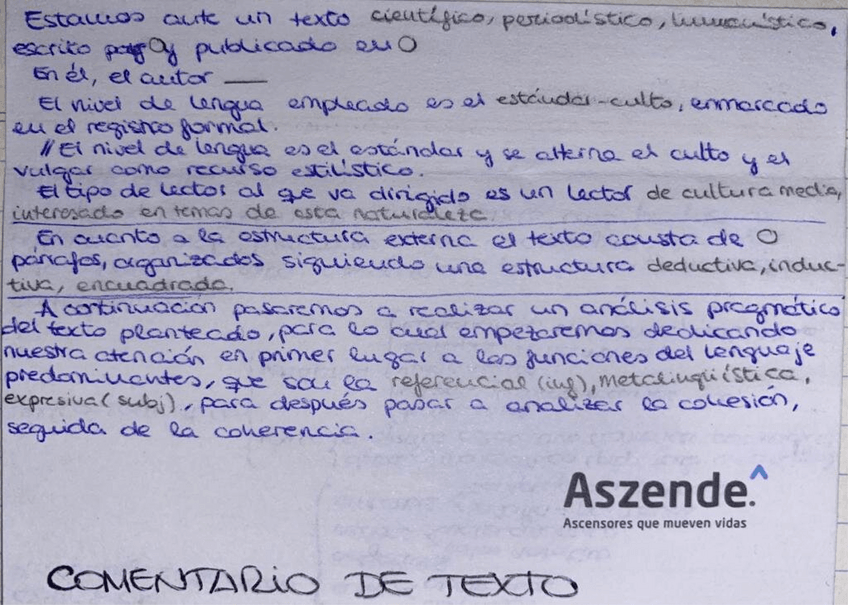 Estamos ante un texto científico, periodístico, humanístico,
escrito por O y publicado en O
En él, el autor ___
El nivel de lengua empleado es el estándar-culto, enmarcado
en el registro formal.
// El nivel de lengua es el estándar y se alterna el culto y el
vulgar como recurso estilístico.
El tipo de lector al que va dirigido es un lector de cultura media,
interesado en temas de esta naturaleza
En cuanto a la estructura externa el texto consta de O
párrafos, organizados siguiendo una estructura deductiva, induc-
tiva, encuadrada.
A continuación pasaremos a realizar un análisis pragmático
del texto planteado, para lo cual empezaremos dedicando
nuestra atención en primer lugar a las funciones del lenguaje
predominantes, que son la referencial (inf), metalingüística,
expresiva (subj), para después pasar a analizar la cohesión,
seguida de la coherencia.
Aszende.
Ascensores que mueven vidas
COMENTARIO DE TEXTO